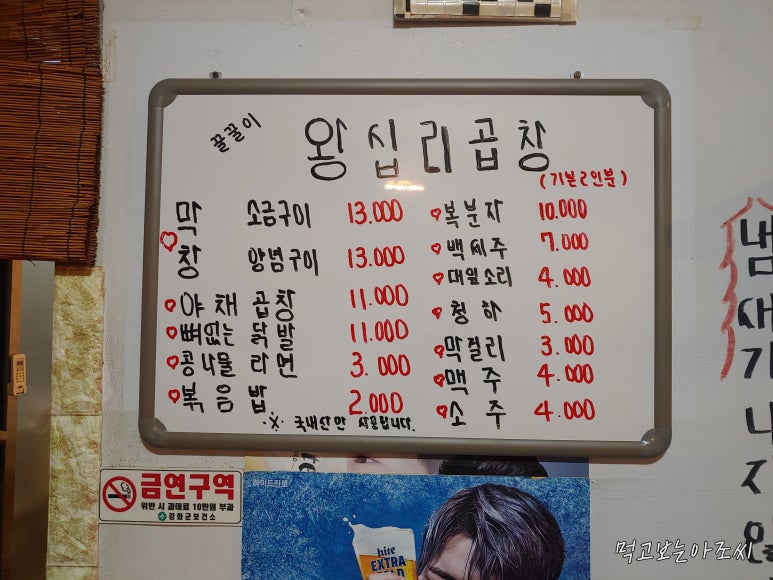 꿀꿀이
왕십리곱창
(기본2인분)
막창 소금구이 13.000
양념구이 13.000
야채곱창 11.000
뼈없는 닭발 11.000
콩나물 라면 3.000
볶음밥 2.000
※ 국내산만 사용합니다.
복분자 10.000
백세주 7.000
대잎소리 4.000
청하 5.000
막걸리 3.000
맥주 4.000
소주 4.000
금연구역
위반 시 과태료 10만원 부과
강화군보건소
하이트진로
hite
EXTRA
COLD
냄새가
먹고보는아조씨